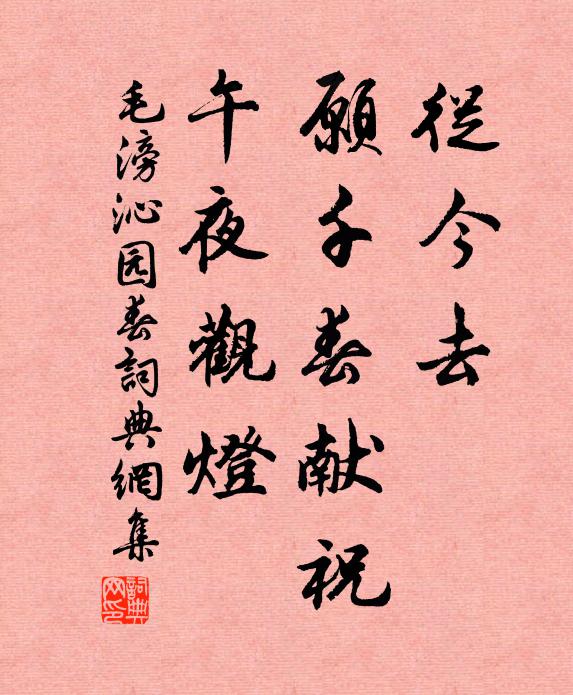 從今去
願千春献祝
午夜觀燈
毛滂沁园春詞典網集
詞典網印